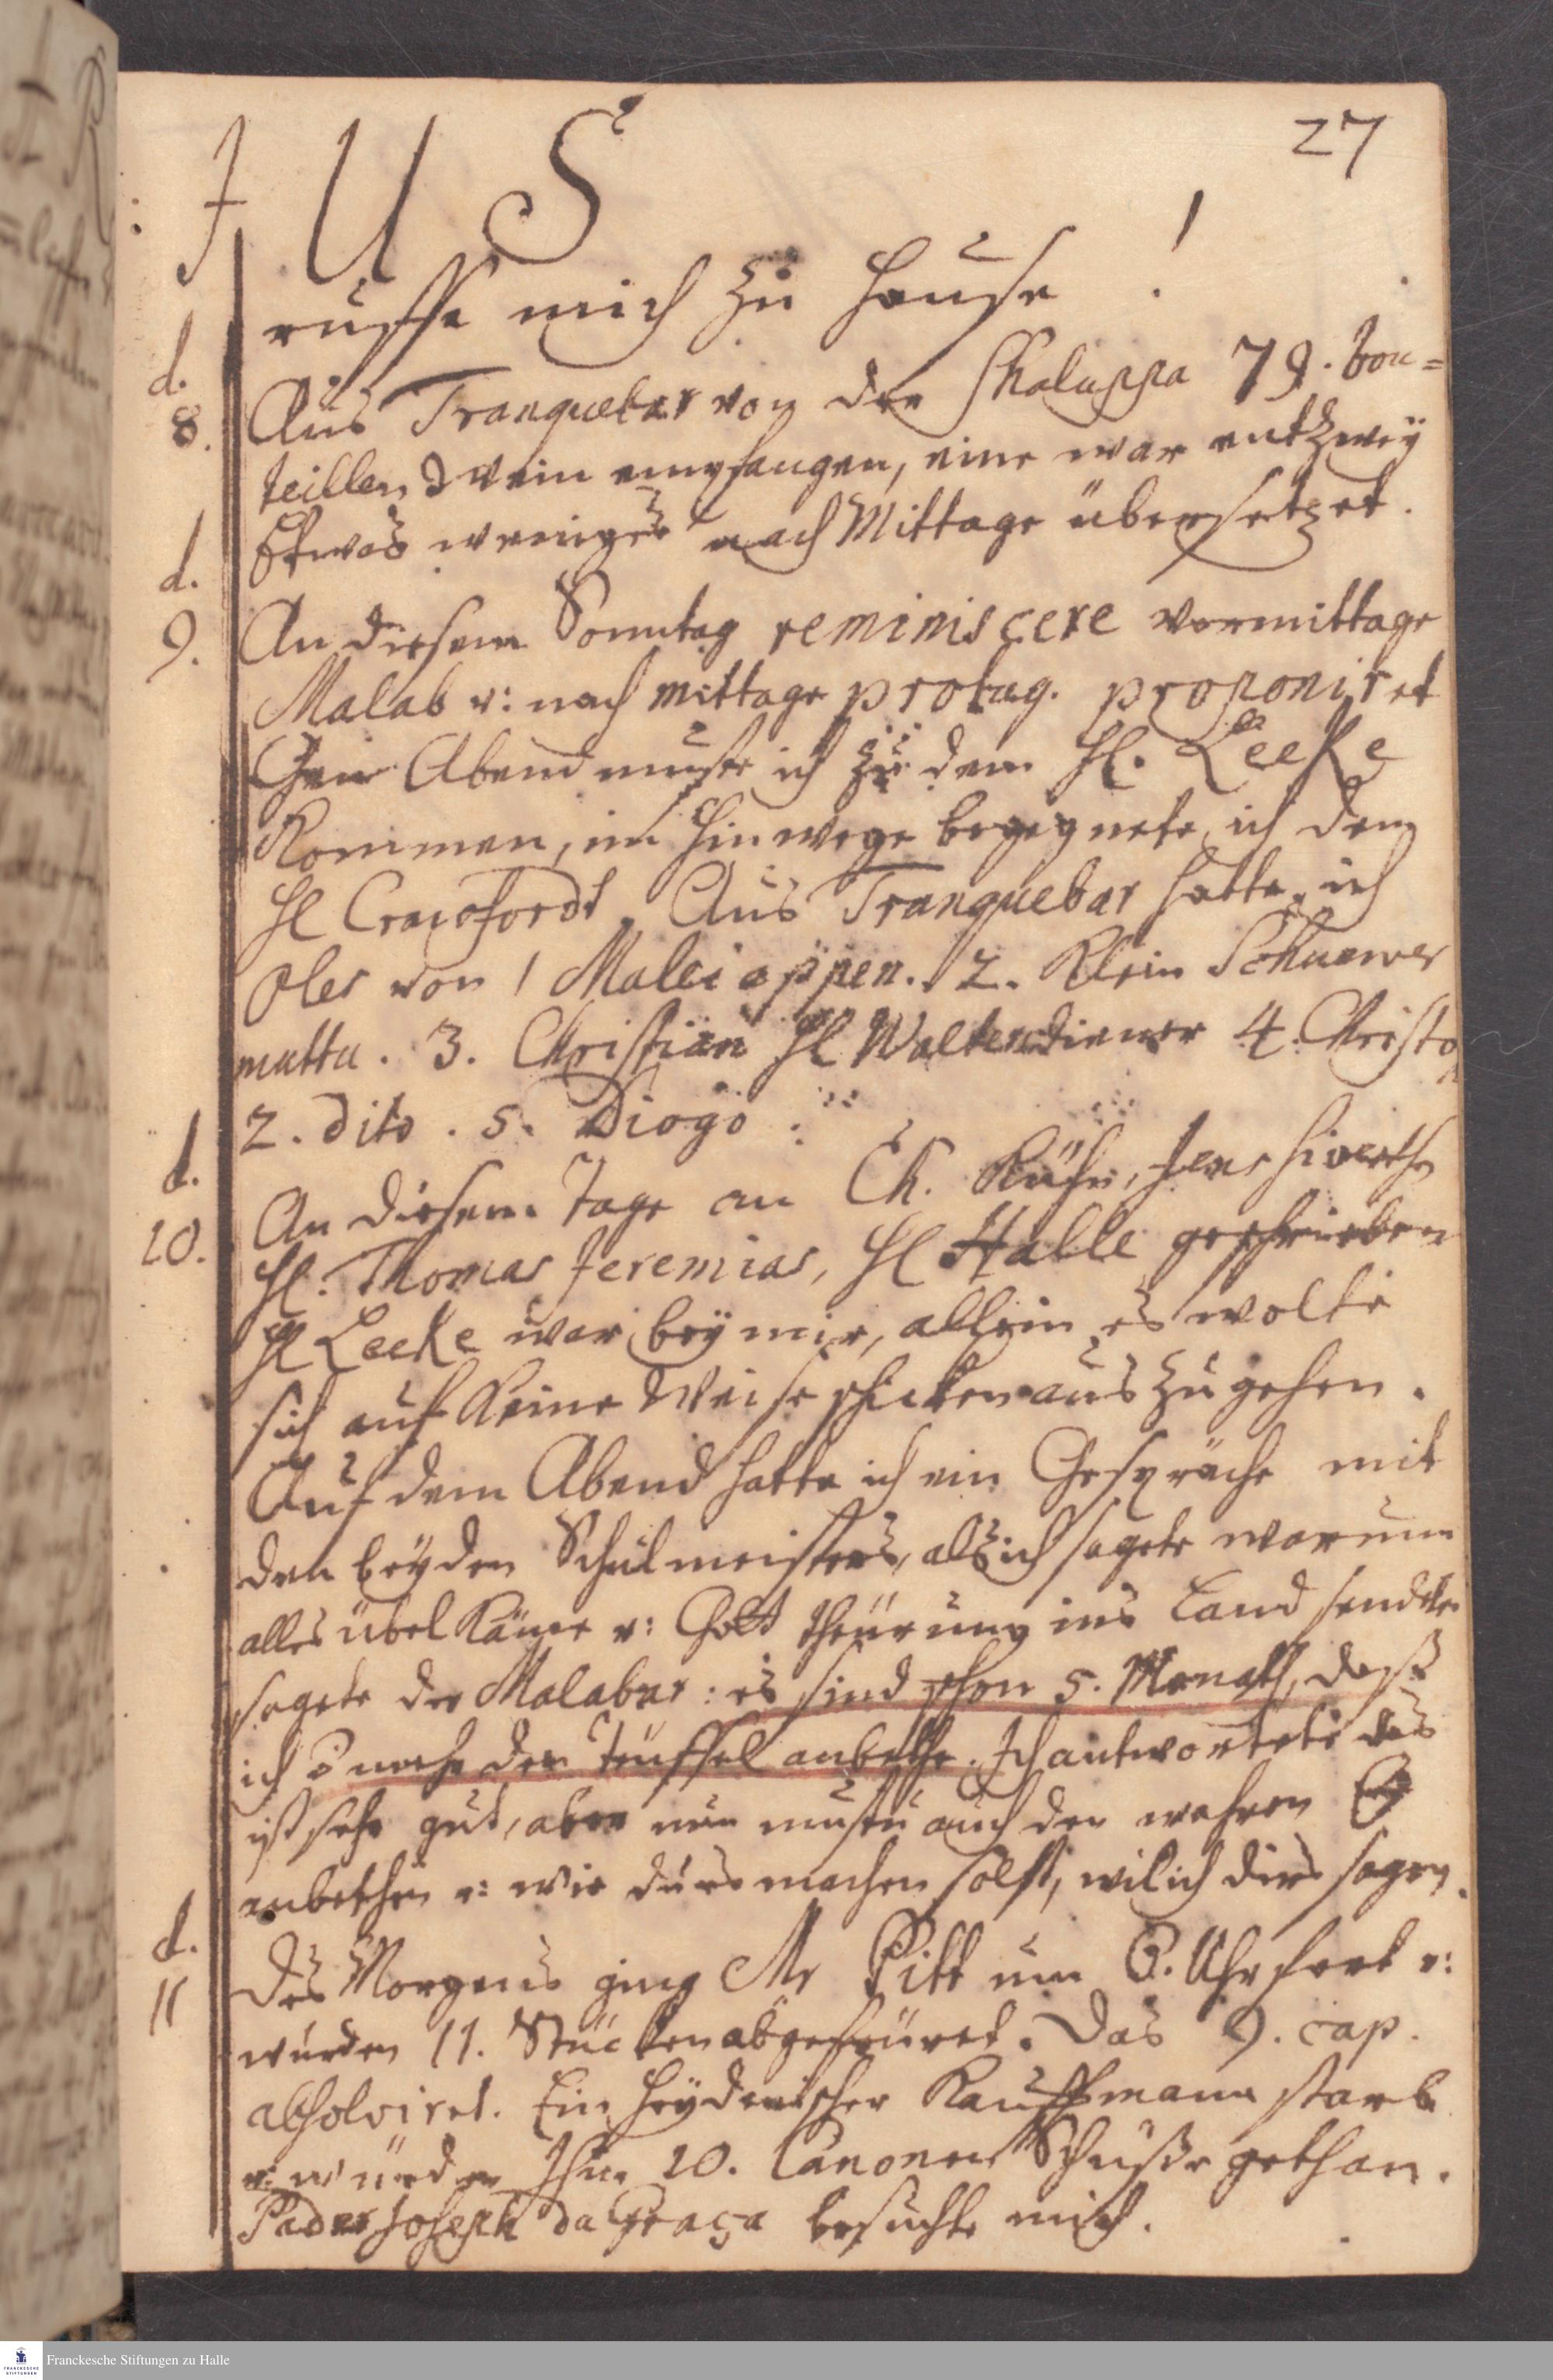 27
J U S
ruffe mich zu Hause !
d. 8. Aus Tranquebar von der Chaluppa 79. bou=
teillen Wein empfangen, eine war entzwey
Etwas weniges nach Mittage übersetzet.
d. 9. An diesem Sonntag reminiscere vormittage
Malab u: nach mittage protug. proponiret
Gen Abend muste ich zu dem Hl. Leeke
Kommen, im hinwege begegnete ich dem
Hl Crawfordt. Aus Tranquebar hatte ich
Oles von 1 Maleiappen. 2. Klein
muttu. 3. Christian Hl Walters diener 4. Christo
2. dito. 5. Diogo
d. 10. An diesem Tage an Ch. Kühn, Jens
Hl. Thomas Jeremias, Hl Halle geschrieben
Hl Leeke war bey mir, allein es wolte
sich auf keine Weise schicken auszugehen.
Auf dem Abend hatte ich ein Gespräche mit
den beyden Schulmeisters, als ich sagete warum
alles übel käme u: Gott theurung ins Land sendete
sagete der Malabar: es sind schon 5. Monath, daß
ich mehr den Teuffel anbethe. Ich antwortete das
ist sehr gut, aber nun mustu auch den wahren
anbethen u: wie du es machen solst, wil ich dirs sagen.
d. 11 Des Morgens ging Mr Pitt um 6. Uhr fort u:
wurden 11. Stücken abgefeuret. Das 9. cap.
absolviret. Ein heydenischer Kauffmann starb
u: wurden Ihm 20. Canonen Schüße gethan.
Pader Joseph da Graça besuchte mich.
Franckesche Stiftungen zu Halle